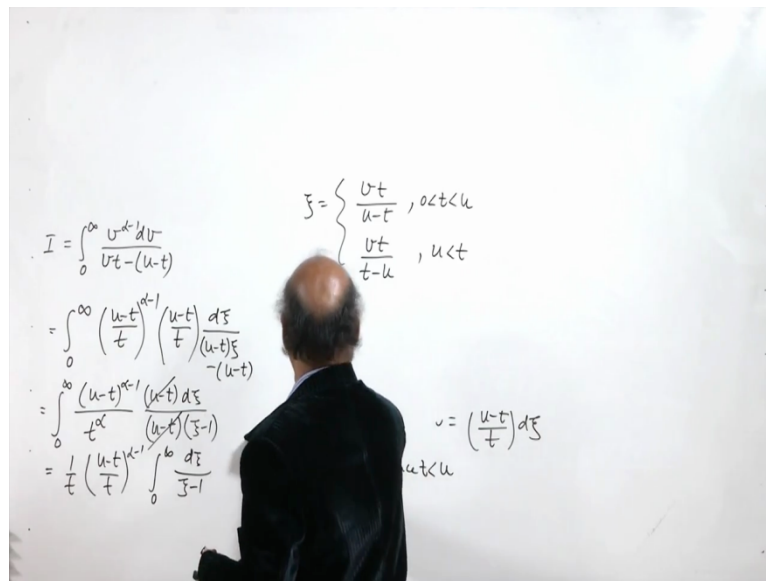 I = ∫₀^∞ v^{α-1}dv / vt-(u-t)
= ∫₀^∞ (u-t / t)^{α-1} (u-t / t) dξ / (u-t)ξ -(u-t)
= ∫₀^∞ (u-t)^{α-1} / t^α (u-t)dξ / (u-t)(ξ-1)
= 1/t (u-t / t)^{α-1} ∫₀^∞ dξ / ξ-1
ξ = { vt / u-t , 0<t<u
vt / t-u , u<t
= (u-t / t) dξ
t<u